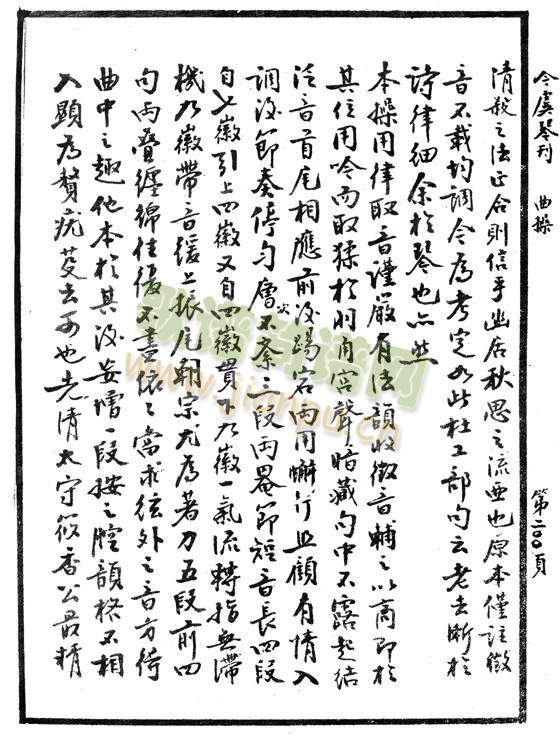 今虞琴刊 曲操 第二〇〇頁
清散之法正合則信乎幽居秋思之流亞也原本僅註徵
音不載均調今為考定如此杜工部句云老去漸於
詩律細余於琴也亦然
本操用律取音謹嚴有法韻收徵音輔之以商即於
其位用吟而取猱於羽角宮聲暗藏句中不露起結
泛音首尾相應前後踢宕兩用懶行且顧有情入
調後節奏停勻層次不紊三段兩罨節短音長四段
自七徽引上四徽又自四徽貫下九徽一氣流轉指無滯
機九徽帶音緩上振尾朝宗尤為著力五段前四
句兩疊纏綿往復不盡依依當求弦外之音方得
曲中之趣他本於其後妄增一段按之腔韻格不相
入顯為贅疣芟去可也先清太守筱香公最精